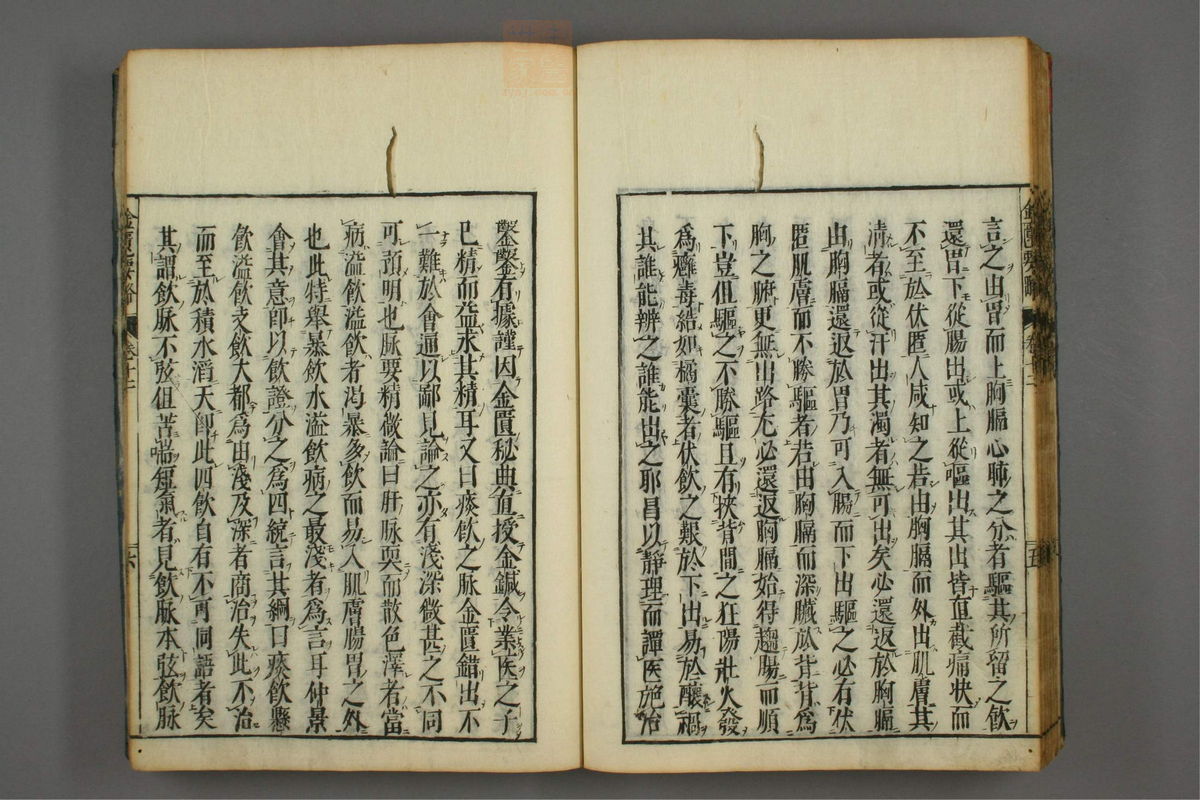 言之由胃而上胸膈心肺之分者驅其所留之飲
還胃下從腸出或上從嘔出其出皆直截痛快而
不至於伏匿人咸知之若由胸膈而外出肌膚其
清者或從汗出其濁者無可出矣必還返於胸膈
由胸膈還返於胃乃可入腸而下出驅之必有伏
匿肌膚而不勝驅者若由胸膈而深臟於背背為
胸之腑更無出路尤必還返胸膈始得趨腸而順
下豈但驅之不勝驅且有挾背間之狂陽壯火發
為癰毒結如橘囊者伏飲之艱於下出易於釀禍
其誰能辨之誰能出之耶昌以靜理而譚医施治
鑿鑿有據謹因金匱秘典直授金鍼令業医之子
已精而益求其精耳又曰痰飲之脉金匱錯出不
一難於會通以鄙見論之亦有淺深微甚之不同
可預明也脉要精微論曰肝脉耎而散色澤者當
病溢飲溢飲者渴暴多飲而易入肌膚腸胃之外
也此特舉暴飲水溢飲病之最淺者為言耳仲景
會其意即以飲證分之為四統言其綱曰痰飲懸
飲溢飲支飲大都為由淺及深者商治失此不治
而至於積水滔天即此四飲自有不可同語者矣
其謂飲脉不弦但苦喘短氣者見飲脉本弦飲脉
卷十二
六
五